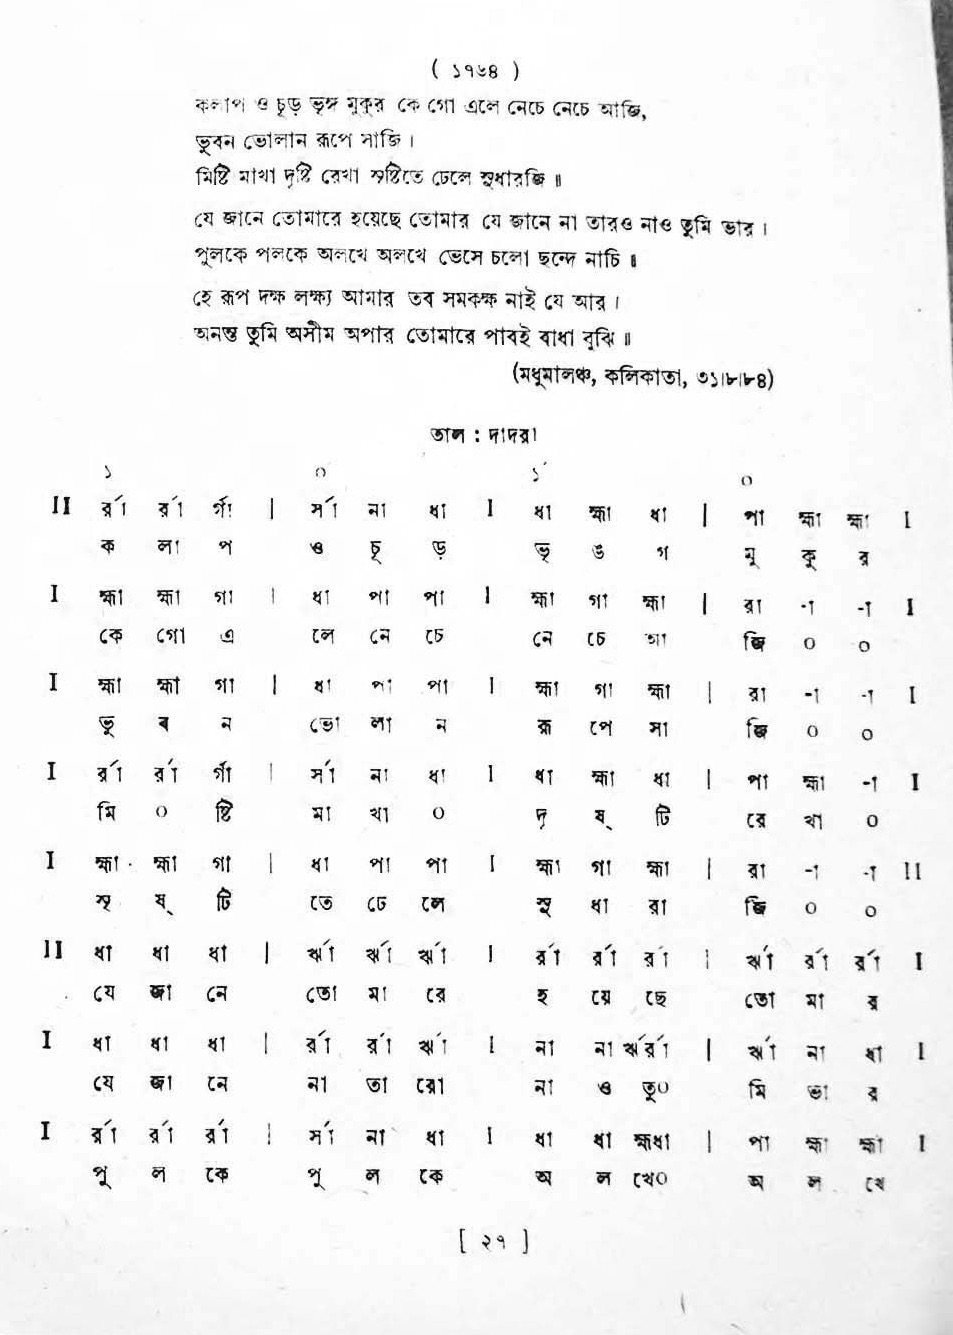 ( ১৭৬৪ )
কলাপ ও চূড় ভৃঙ্গ মুকুর কে গো এলে নেচে নেচে আজি,
ভুবন ভোলান রূপে সাজি ।
মিষ্টি মাখা দৃষ্টি রেখা সৃষ্টিতে ঢেলে সুধারাজি ॥
যে জানে তোমারে হয়েছে তোমার যে জানে না তারও নাও তুমি ভার ।
পুলকে পলকে অলখে অলখে ভেসে চলো ছন্দে নাচি ॥
হে রূপ দক্ষ লক্ষ্য আমার তব সমকক্ষ নাই যে আর ।
অনন্ত তুমি অসীম অপার তোমারে পাবই বাধা বুঝি ॥
(মধুমালঞ্চ, কলিকাতা, ৩১।৮।৮৪)
তাল : দাদরা
১ ০ ১́ ০
II র্রা র্রা র্গা | র্সা না ধা I ধা হ্মা ধা | পা হ্মা হ্মা I
ক লা প ও চূ ড় ভৃ ঙ গ মু কু র
I হ্মা হ্মা গা | ধা পা পা I হ্মা গা হ্মা | রা -া -া I
কে গো এ লে নে চে নে চে আ জি ০ ০
I হ্মা হ্মা গা | ধা পা পা I হ্মা গা হ্মা | রা -া -া I
ভু ব ন ভো লা ন রূ পে সা জি ০ ০
I র্রা র্রা র্গা | র্সা না ধা I ধা হ্মা ধা | পা হ্মা -া I
মি ০ ষ্টি মা খা ০ দৃ ষ্ টি রে খা ০
I হ্মা হ্মা গা | ধা পা পা I হ্মা গা হ্মা | রা -া -া II
সৃ ষ্ টি তে ঢে লে সু ধা রা জি ০ ০
II ধা ধা ধা | র্ঋা র্ঋা র্ঋা I র্রা র্রা র্রা | র্ঋা র্রা র্রা I
যে জা নে তো মা রে হ য়ে ছে তো মা র
I ধা ধা ধা | র্রা র্রা র্ঋা I না না র্ঋর্রা | র্ঋা না ধা I
যে জা নে না তা রো না ও তু০ মি ভা র
I র্রা র্রা র্রা | র্সা না ধা I ধা ধা হ্মধা | পা হ্মা হ্মা I
পু ল কে পু ল কে অ ল খে০ অ ল খে
[ ২৭ ]